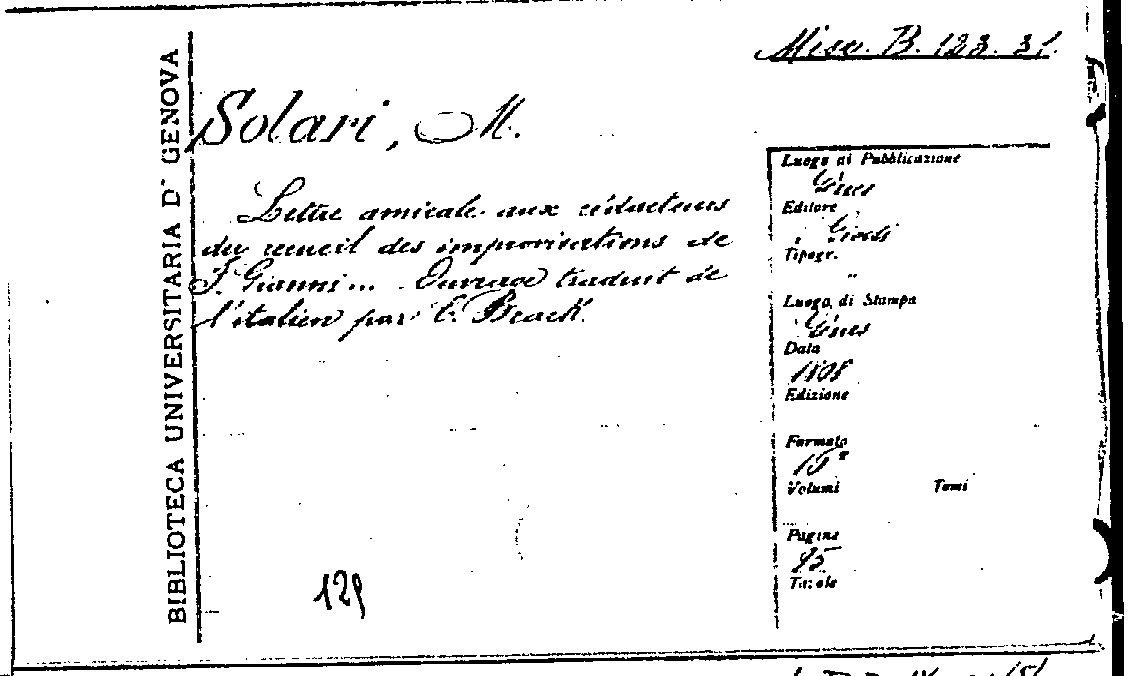 BIBLIOTECA UNIVERSITARIA DI GENOVA
Misc. B. 123. 31.
Solari, M.
Lettre amicale aux rédacteurs
du recueil des improvisations de
F. Gianni... Ouvrage traduit de
l'italien par C. Brack.
Luogo di Pubblicazione
Gênes
Editore
Giossi
Tipogr.
"
Luogo di Stampa
Gênes
Data
1808
Edizione
Formato
Volumi Tomi
Pagine
95
Titolo
129